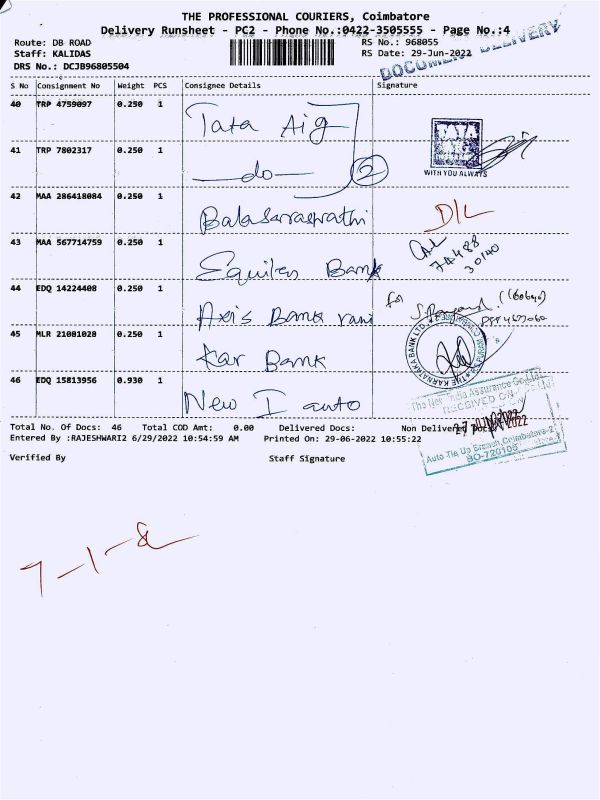 THE PROFESSIONAL COURIERS, Coimbatore
Delivery Runsheet - PC2 - Phone No.:0422-3505555 - Page No.:4
Route: DB ROAD
RS No.: 968055
Staff: KALIDAS
RS Date: 29-Jun-2022
DRS No.: DCJB96805504
DOCUMENT DELIVERY
S No Consignment No Weight PCS Consignee Details Signature
40 TRP 4759097 0.250 1 Tata Aig
41 TRP 7802317 0.250 1 —do— 2
TATA AIG
WITH YOU ALWAYS
42 MAA 286418084 0.250 1 Balasaraswathi D/L
43 MAA 567714759 0.250 1 Equitas Bank
74488
30140
44 EDQ 14224408 0.250 1 Axis Bank rani for
45 MLR 21081028 0.250 1 Kar Bank
THE KARNATAKA BANK LTD.
46 EDQ 15813956 0.930 1 New I auto
The New India Assurance Co. Ltd.
RECEIVED ON
Total No. Of Docs: 46 Total COD Amt: 0.00 Delivered Docs: Non Delivered Docs:
2022
Entered By :RAJESHWARI2 6/29/2022 10:54:59 AM Printed On: 29-06-2022 10:55:22
Auto Tie Up Branch, Coimbatore-2
BO-720105
Verified By Staff Signature
7-1-8